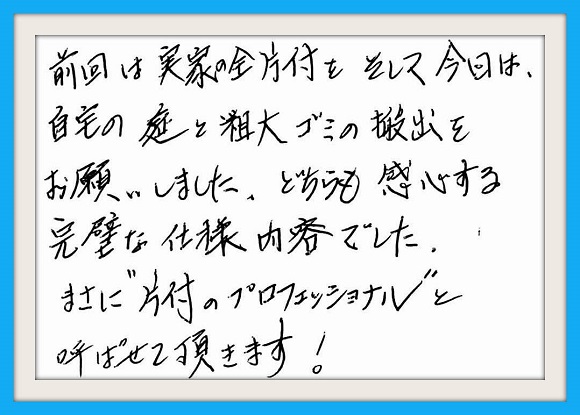 前回は実家の全片付を そして今回は、
自宅の庭と粗大ゴミの搬出を
お願いしました、どちらも感心する
完璧な仕様内容でした。
まさに"片付のプロフェッショナル"と
呼ばせて頂きます！